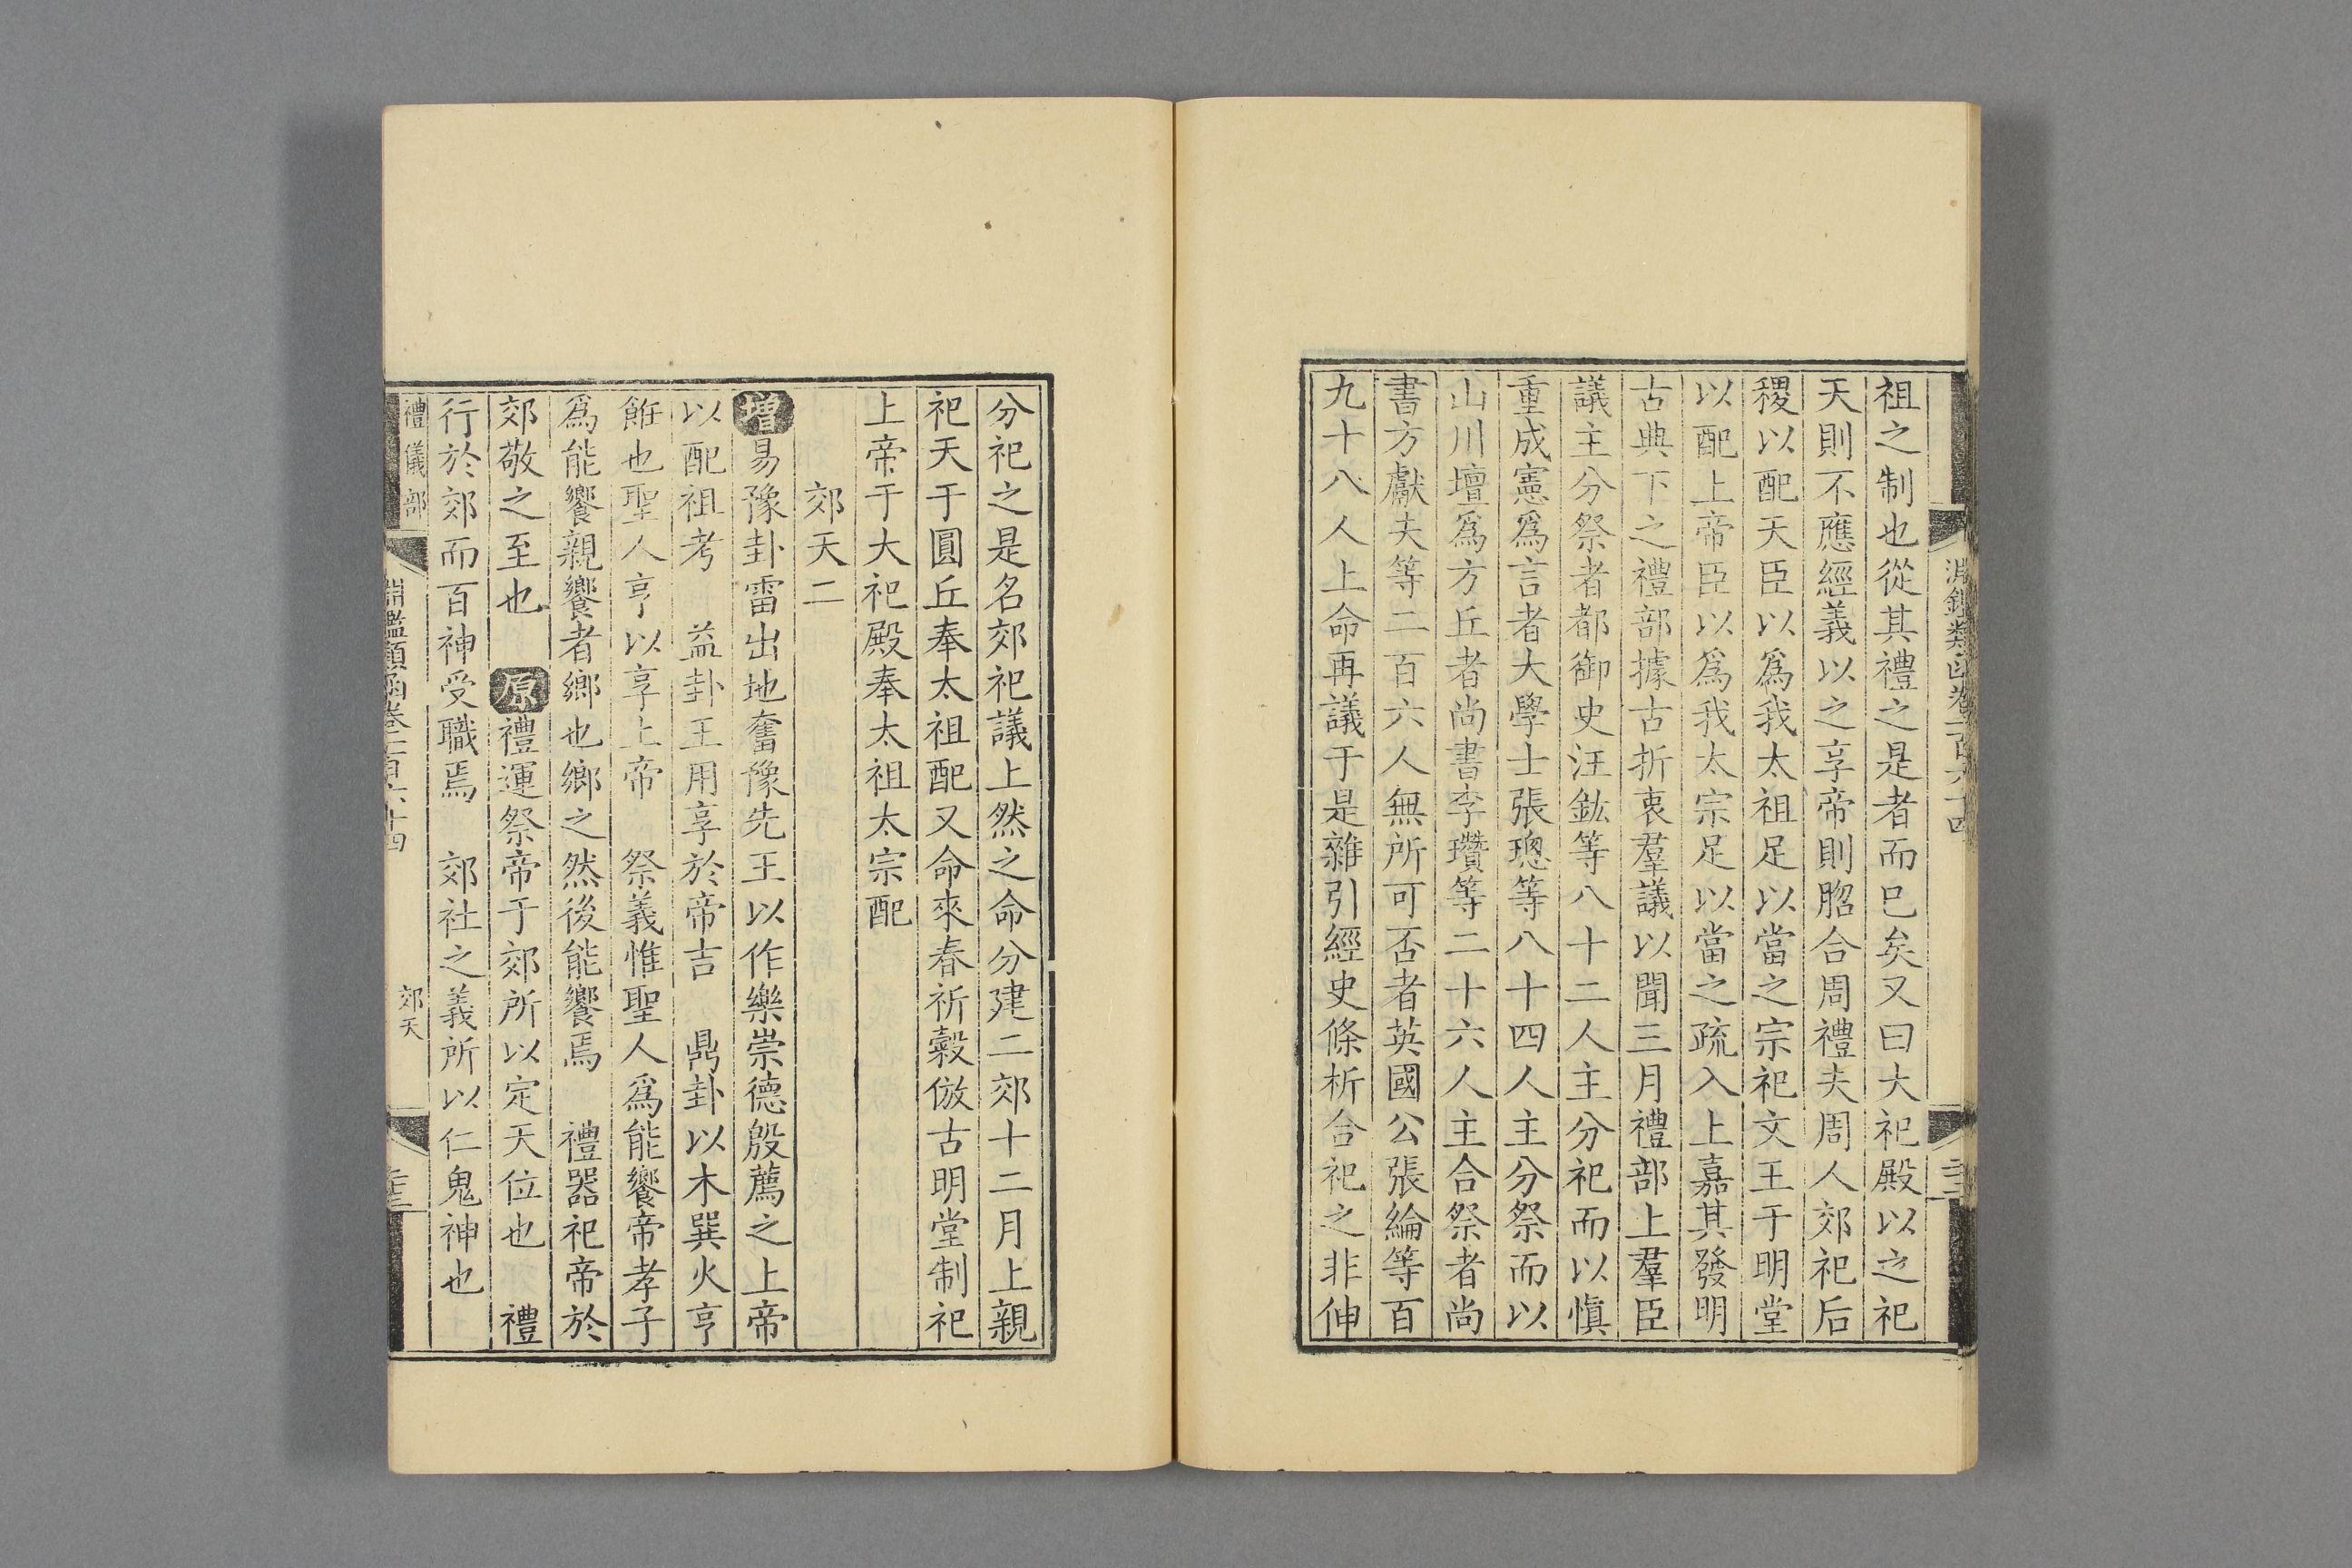 淵鑑類函卷一百六十四
祖之制也從其禮之是者而已矣又曰大祀殿以之祀
天則不應經義以之享帝則脗合周禮夫周人郊祀后
稷以配天臣以爲我太祖足以當之宗祀文王于明堂
以配上帝臣以爲我太宗足以當之疏入上嘉其發明
古典下之禮部據古折衷羣議以聞三月禮部上羣臣
議主分祭者都御史汪鋐等八十二人主分祀而以愼
重成憲爲言者大學士張璁等八十四人主分祭而以
山川壇爲方丘者尚書李瓚等二十六人主合祭者尚
書方獻夫等二百六人無所可否者英國公張綸等百
九十八人上命再議于是雜引經史條析合祀之非伸
分祀之是名郊祀議上然之命分建二郊十二月上親
祀天于圓丘奉太祖配又命來春祈穀倣古明堂制祀
上帝于大祀殿奉太祖太宗配
郊天二
增易豫卦雷出地奮豫先王以作樂崇德殷薦之上帝
以配祖考 益卦王用享於帝吉 鼎卦以木巽火亨
餁也聖人亨以享上帝 祭義惟聖人爲能饗帝孝子
爲能饗親饗者鄉也鄉之然後能饗焉 禮器祀帝於
郊敬之至也 原禮運祭帝于郊所以定天位也 禮
行於郊而百神受職焉 郊社之義所以仁鬼神也
禮儀部 淵鑑類函卷一百六十四 郊天